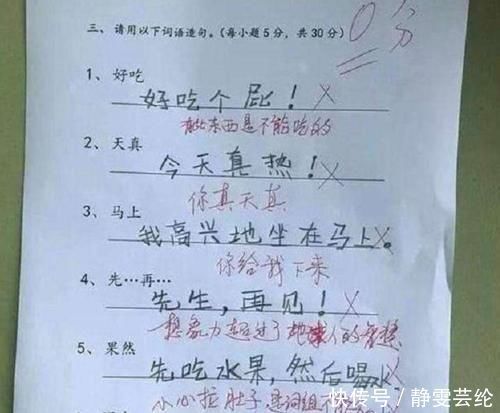 三、请用以下词语造句。(每小题5分,共30分)
0分
1、好吃
好吃个屁!
有些东西是不能吃的
2、天真
今天真热!
你真天真
3、马上
我高兴地坐在马上。
你给我下来
4、先…再…
先生,再见!
想象力超过了地球人的
5、果然
先吃水果,然后喝水
小心拉肚子,是词组
快传号/静雯芸纶